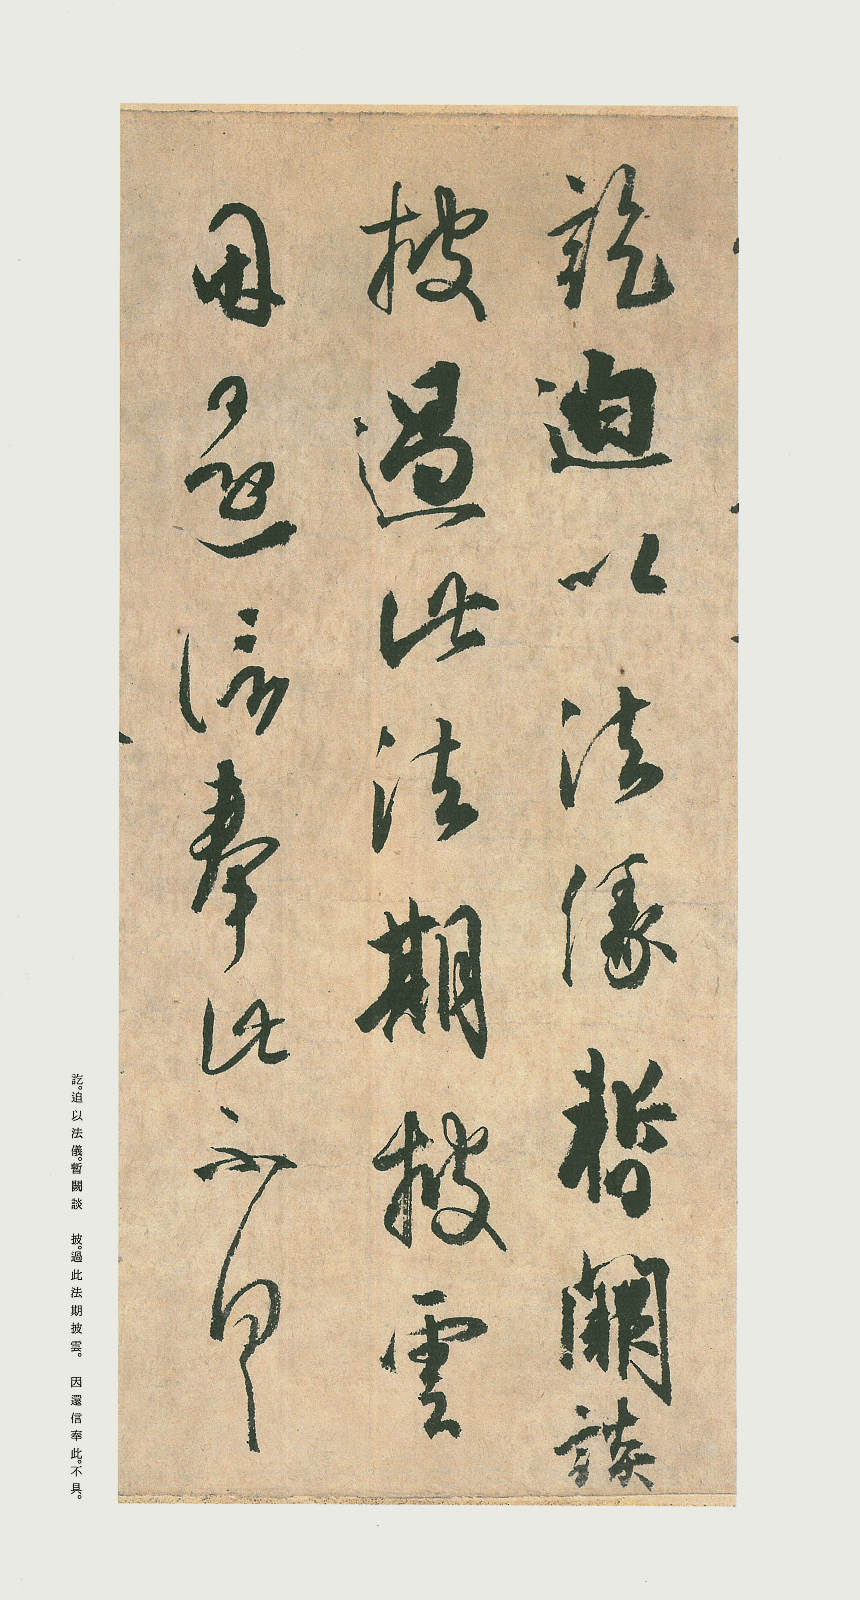 訖迫以法儀暫闕談
披過此法期披雲
因還信奉此不具
訖。迫以法儀。暫闕談　披。過此法期披雲。　因還信奉此。不具。